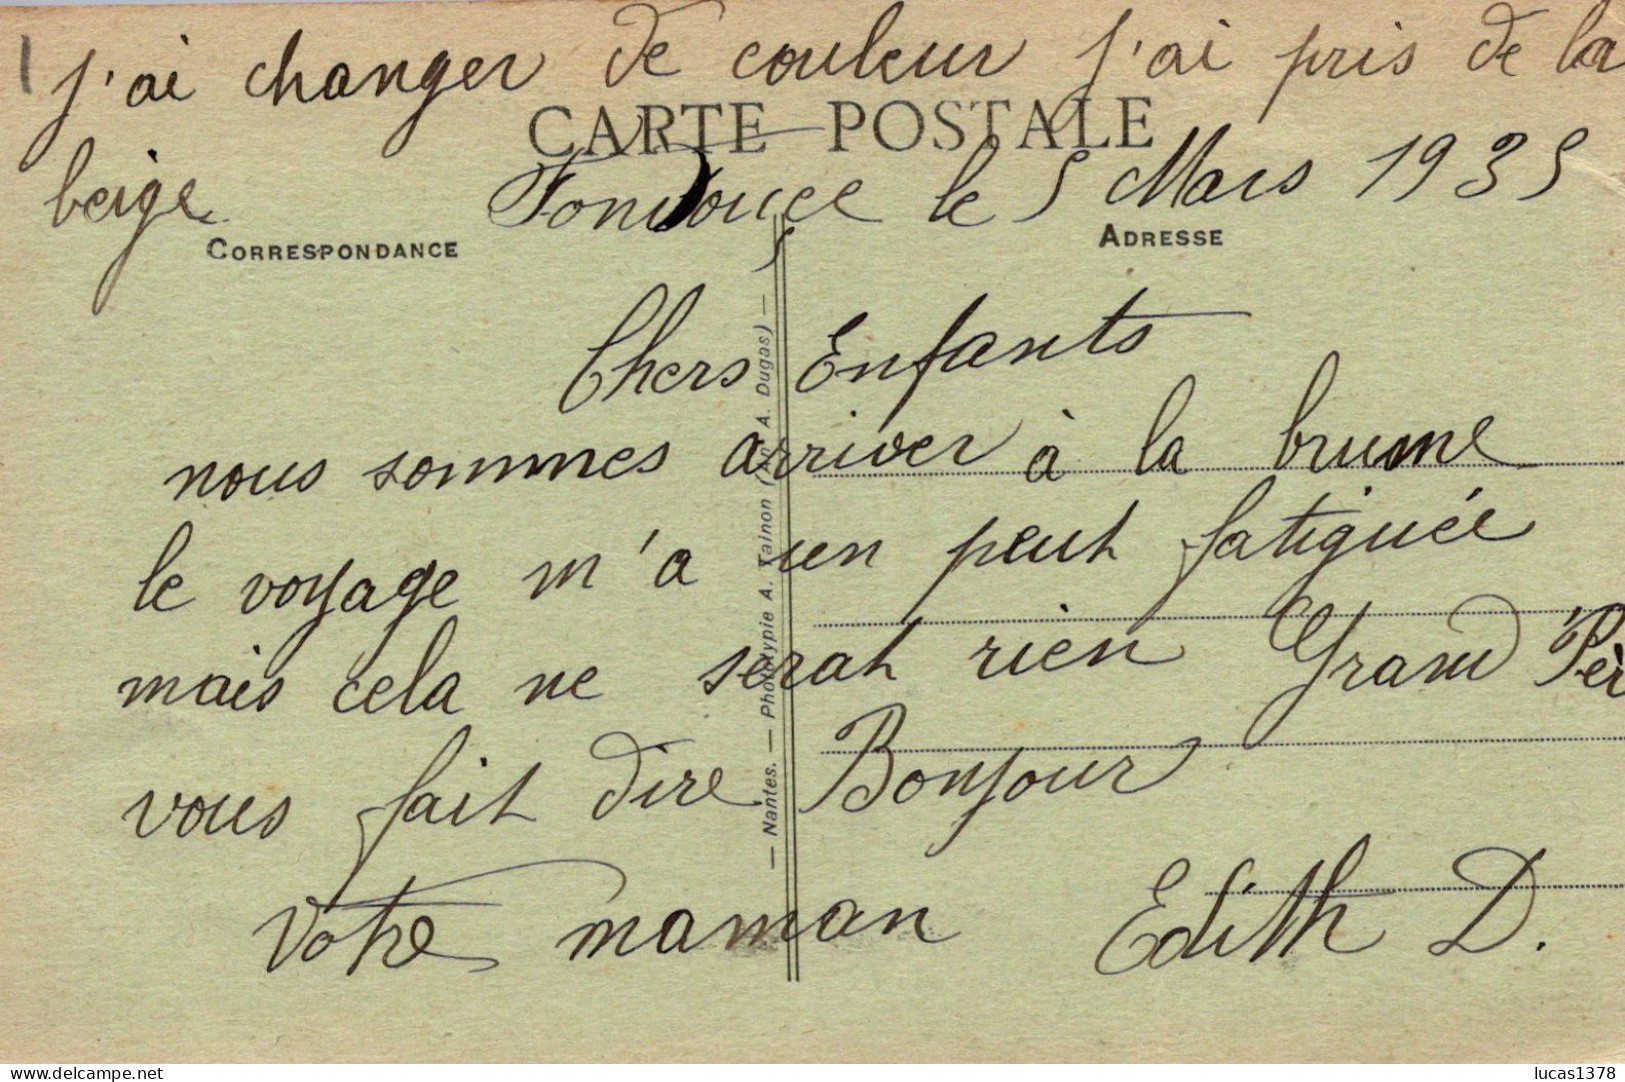 J'ai changer de couleur j'ai pris de la
CARTE POSTALE
beige Fondouce le 5 Mars 1935
CORRESPONDANCE
ADRESSE
Chers Enfants
nous sommes arriver à la brume
le voyage m'a un peut fatiguée
mais cela ne serat rien Grand Pèr
vous fait dire Bonjour
Votre maman Edith D.
— Nantes. — Phototypie A. Talnon (An. A. Dugas) —
delcampe.net
lucas1378